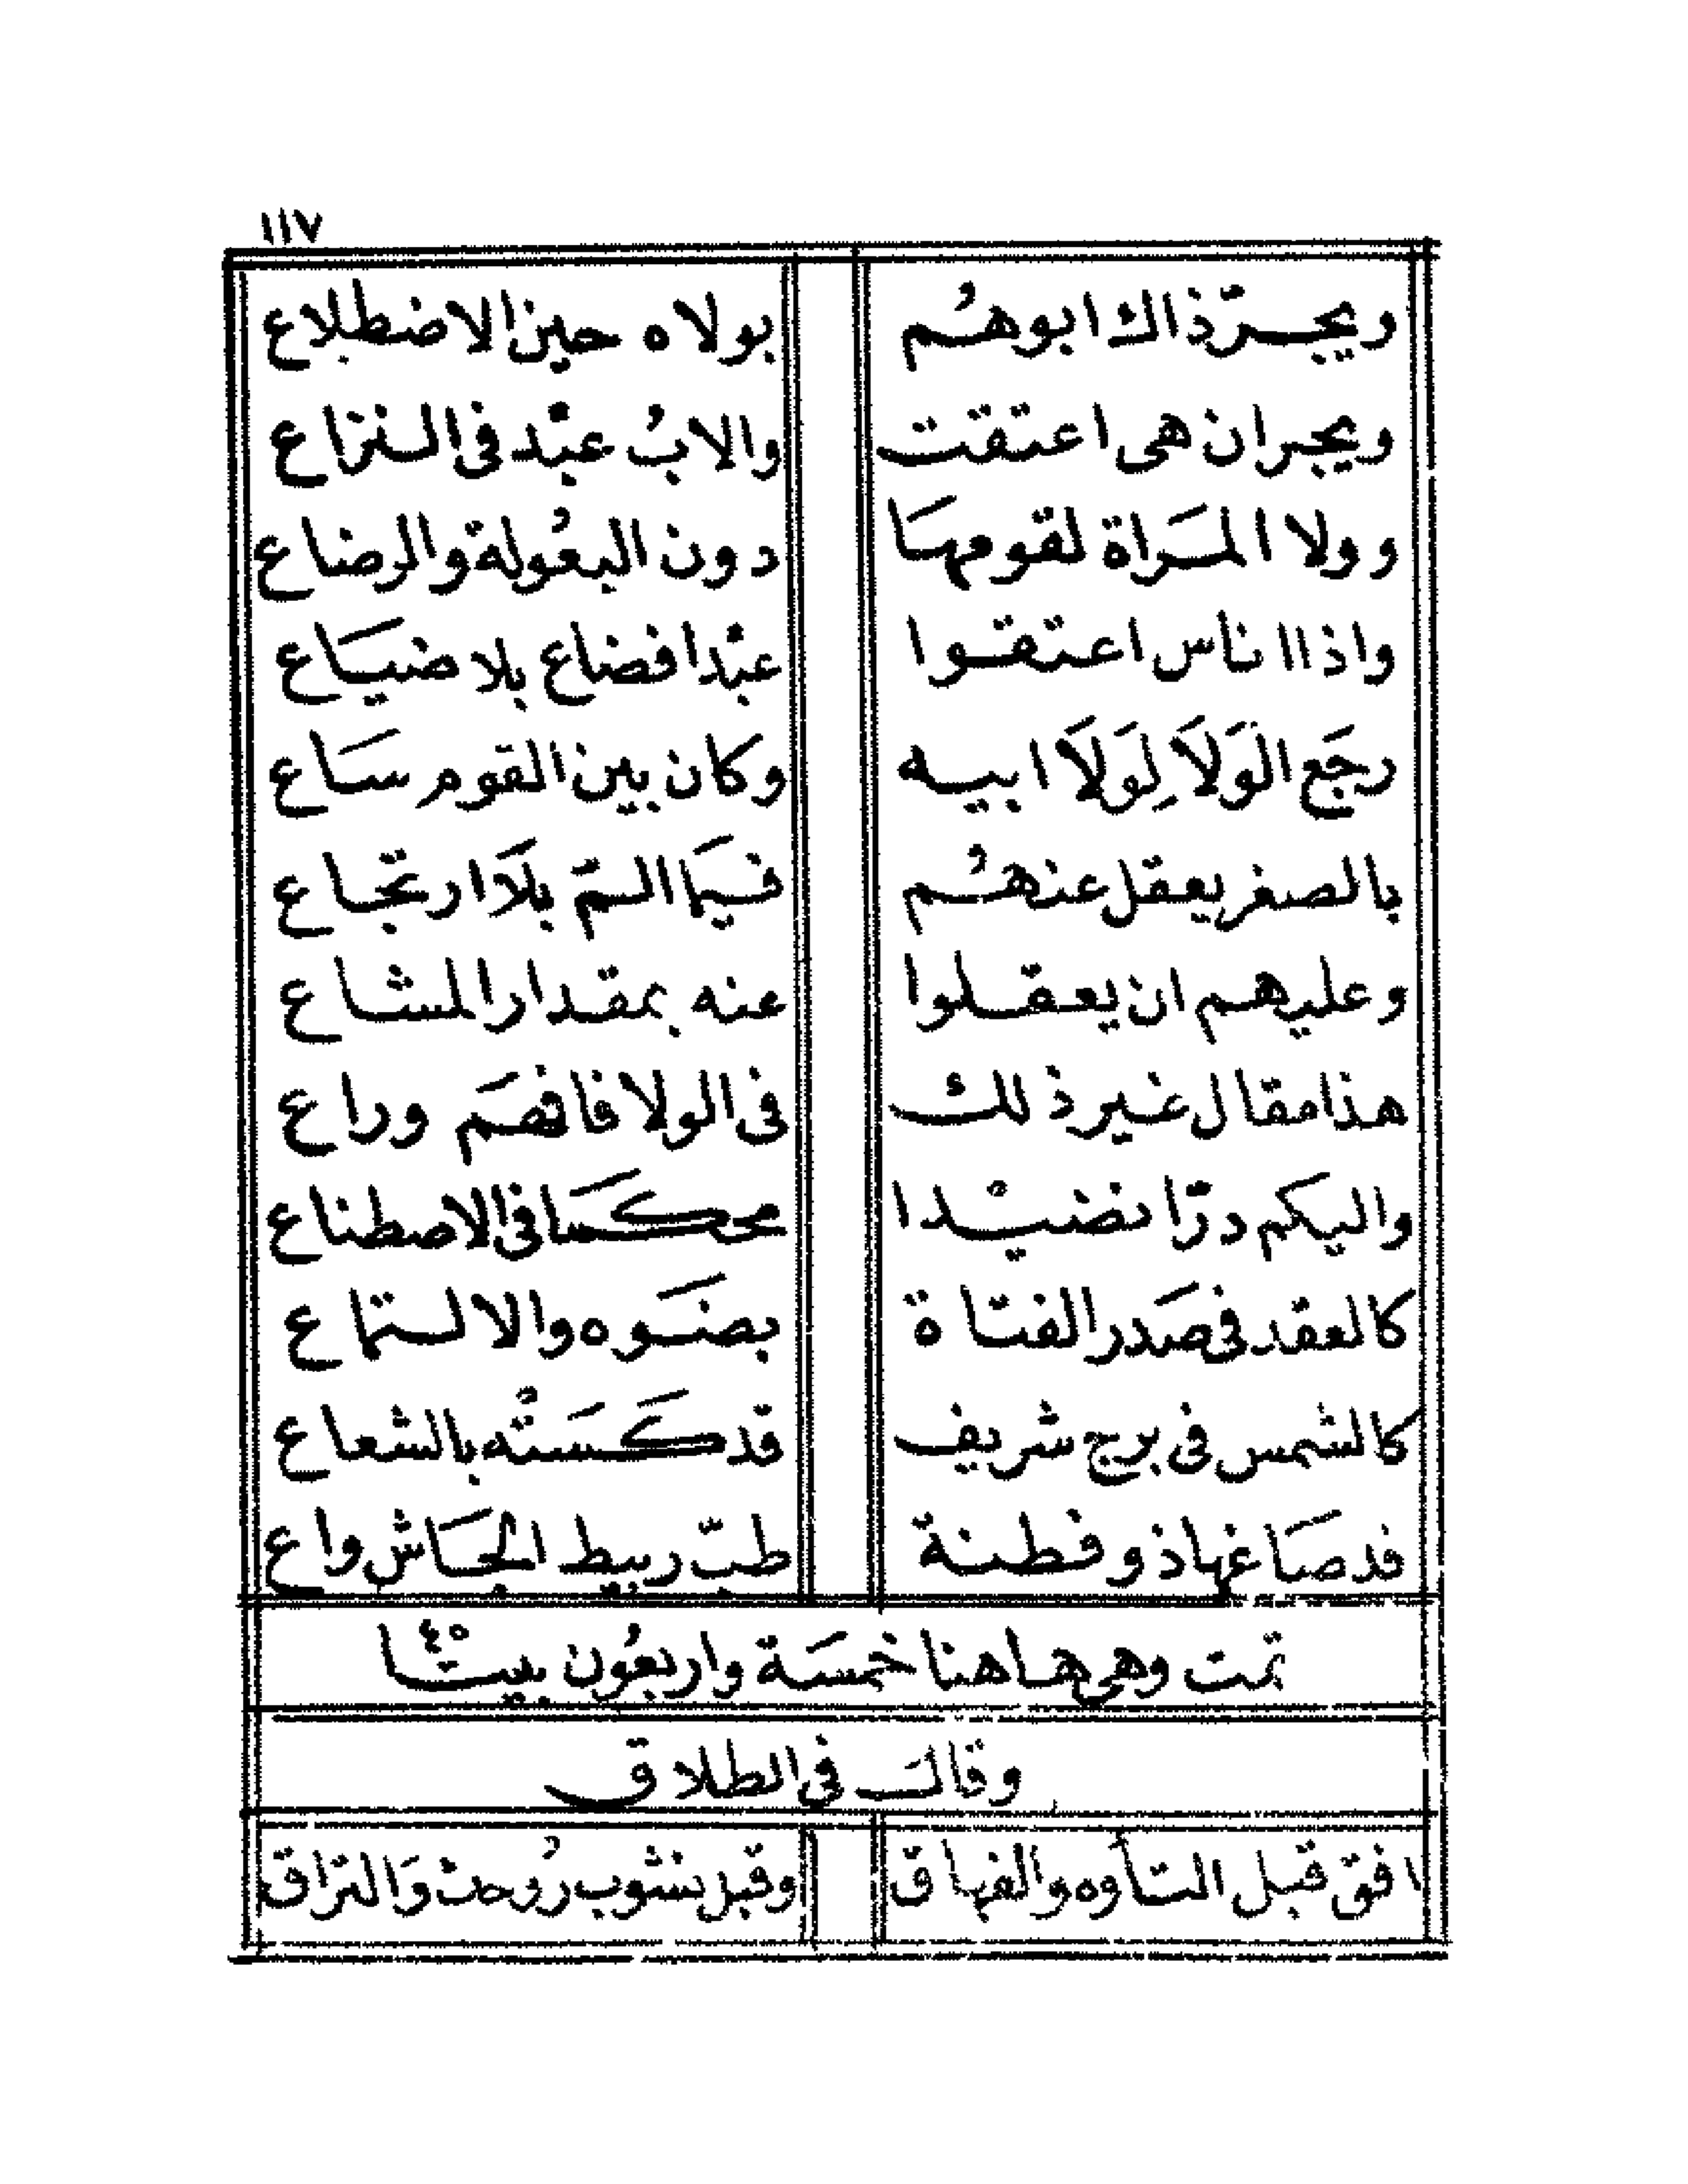 ١١٧
ويجرّ ذاك ابوهُم بولاه حين الاضطلاع
ويجر ان هى اعتقت والابُ عبْد فى النزاع
وولا المَراة لقومهَا دون البعُولة والرضاع
واذا اناس اعتقوا عبْدا فضاع بلا ضيَاع
رجَع الوَلاَ لِوَلاَ ابيه وكان بين القوم سَاع
بالصغر يعقل عنهُم فيمَا المّ بلاَ ارتجاع
وعليهم ان يعقلوا عنه بمقدار المشاع
هذا مقال غير ذلك فى الولا فافهَم وراع
واليكم درّا نضيْدا محكمَا فى الاصطناع
كالعقد فى صَدر الفتاة بضَوه والالتماع
كالشمس فى برج شريف قد كَسَتْه بالشعاع
قد صَاغها ذو فطنة طبّ ربيط الجَاش واع
تمت وهى هاهنا خمسَة واربعُون بيتًا ٤٥
وقالَ فى الطلاق
افق قبل التأوه والفهاق وقبل نشوب رُوحك وَالتراق